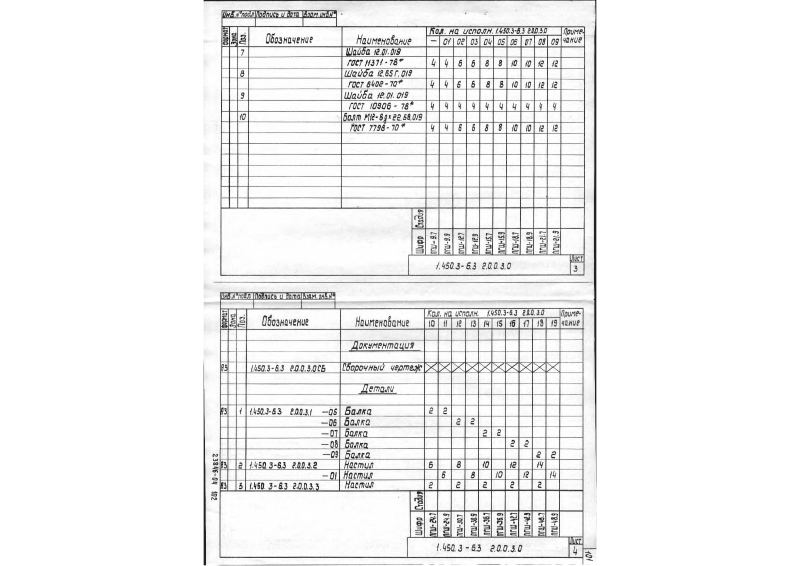 Инв.№подл Подпись и дата Взам.инв.№
Формат Зона Поз. Обозначение Наименование Кол. на исполн. 1.450.3-6.3 2.0.0.3.0 Приме-чание
— 01 02 03 04 05 06 07 08 09
7 Шайба 12.01.019
ГОСТ 11371-78* 4 4 6 6 8 8 10 10 12 12
8 Шайба 12.65Г.019
ГОСТ 6402-70* 4 4 6 6 8 8 10 10 12 12
9 Шайба 12.01.019
ГОСТ 10906-78* 4 4 4 4 4 4 4 4 4 4
10 Болт М12-8gx22.58.019
ГОСТ 7798-70* 4 4 6 6 8 8 10 10 12 12
Стадия
Шифр ПГШ-9.7 ПГШ-9.9 ПГШ-12.7 ПГШ-12.9 ПГШ-15.7 ПГШ-15.9 ПГШ-18.7 ПГШ-18.9 ПГШ-21.7 ПГШ-21.9
1.450.3-6.3 2.0.0.3.0 Лист 3
Инв.№подл. Подпись и дата Взам.инв.№
Формат Зона Поз. Обозначение Наименование Кол. на исполн. 1.450.3-6.3 2.0.0.3.0 Приме-чание
10 11 12 13 14 15 16 17 18 19
Документация
А3 1.450.3-6.3 2.0.0.3.0СБ Сборочный чертеж
Детали
А3 1 1.450.3-6.3 2.0.0.3.1 -05 Балка 2 2
-06 Балка 2 2
-07 Балка 2 2
-08 Балка 2 2
-09 Балка 2 2
А3 2 1.450.3-6.3 2.0.0.3.2 Настил 6 8 10 12 14
-01 Настил 6 8 10 12 14
А3 3 1.450.3-6.3 2.0.0.3.3 Настил 2 2 2 2 2
Стадия
Шифр ПГШ-24.7 ПГШ-24.9 ПГШ-30.7 ПГШ-30.9 ПГШ-36.7 ПГШ-36.9 ПГШ-42.7 ПГШ-42.9 ПГШ-48.7 ПГШ-48.9
1.450.3-6.3 2.0.0.3.0 Лист 4
23846-04 102
101